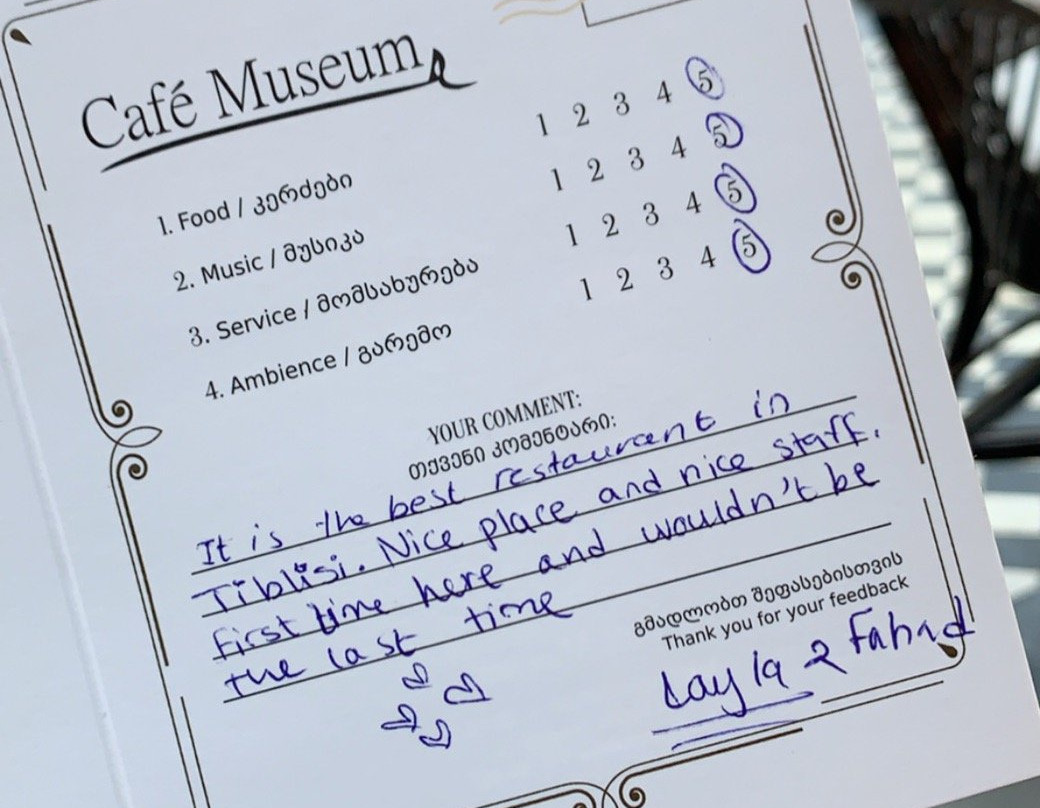 Café Museum
1. Food / კერძები 1 2 3 4 5
2. Music / მუსიკა 1 2 3 4 5
3. Service / მომსახურება 1 2 3 4 5
4. Ambience / გარემო 1 2 3 4 5
YOUR COMMENT:
თქვენი კომენტარი:
It is the best restaurant in
Tiblisi. Nice place and nice staff.
First time here and wouldn't be
the last time
გმადლობთ შეფასებისთვის
Thank you for your feedback
Layla & Fahad